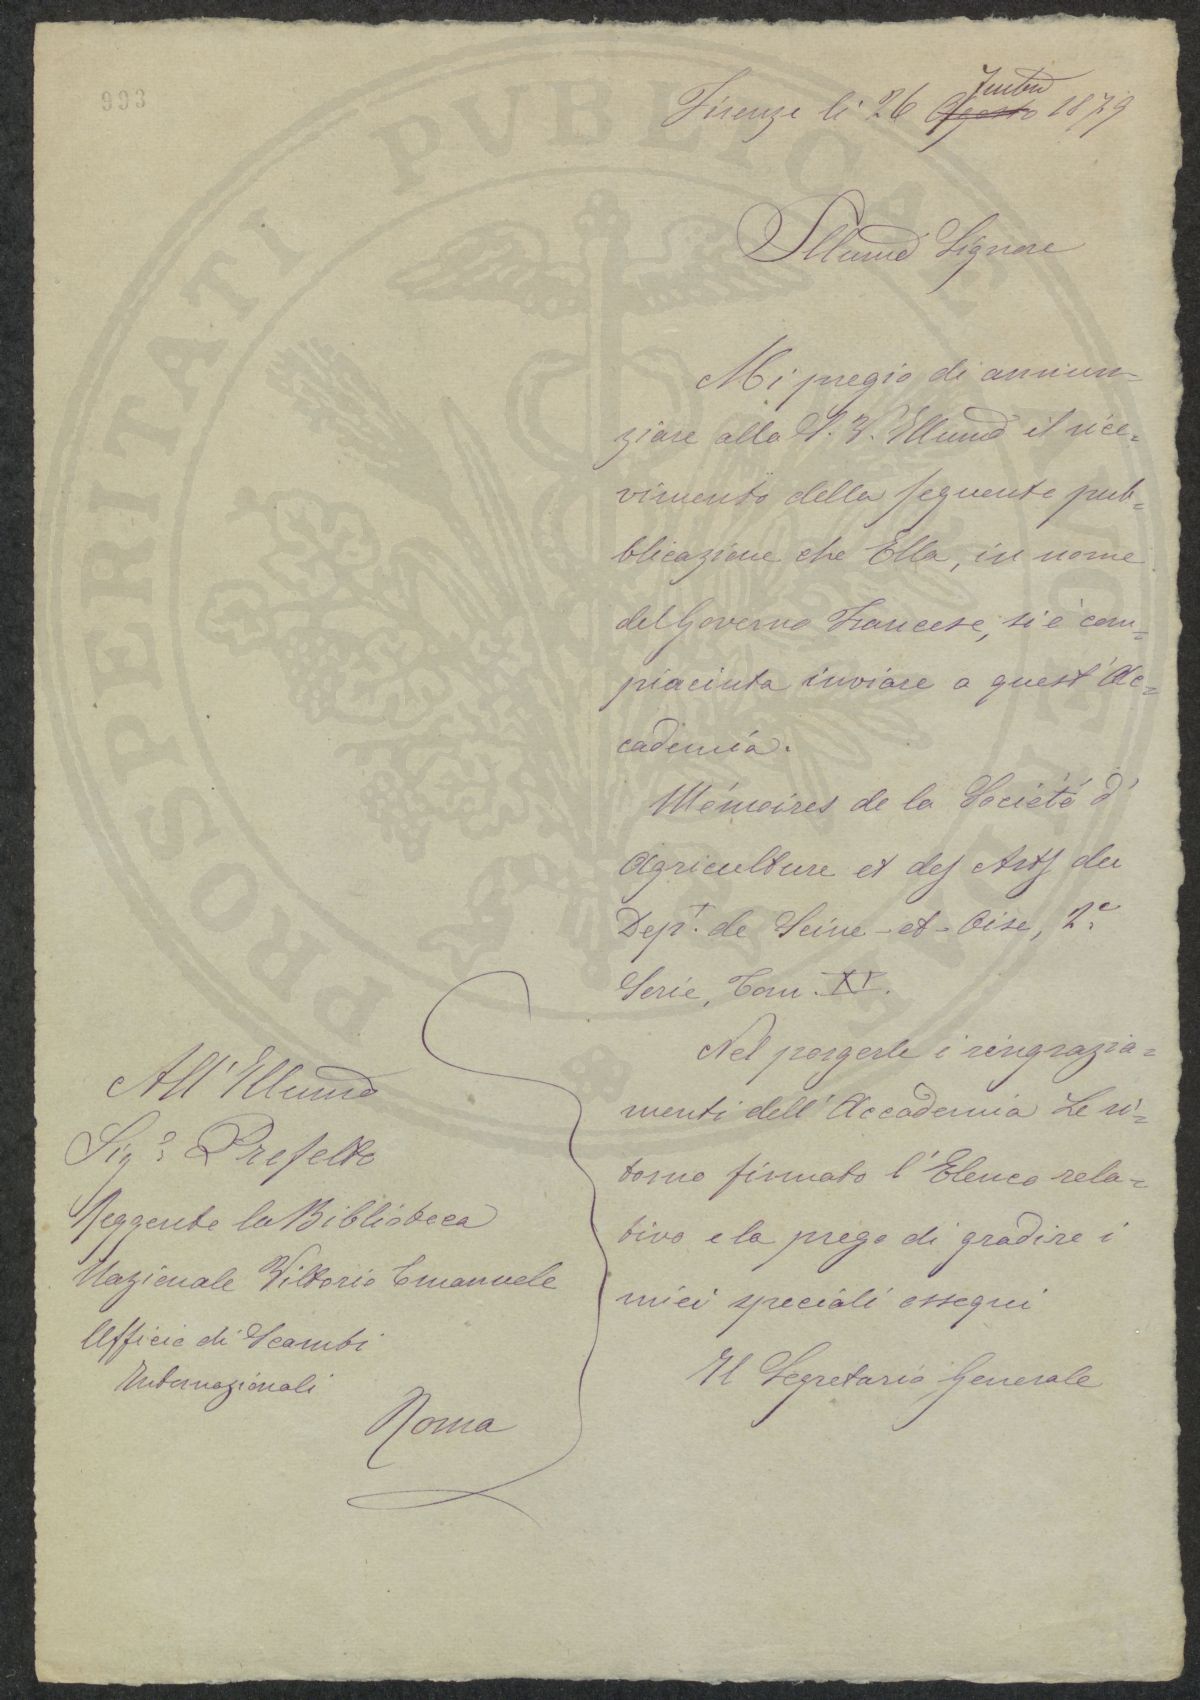 993
Firenze li 26 7mbre 1879
Agosto
Illumo Signore
Mi pregio di annun-
ziare alla S. V. Illuma il rice-
vimento della seguente pub-
blicazione che Ella, in nome
del Governo Francese, si è com-
piaciuta inviare a quest'Ac-
cademia.
Mémoires de la Société d'
Agriculture et des Arts du
Dept. de Seine-et-Oise, 2e
Serie, Tom. XI.
Nel porgerle i ringrazia-
menti dell'Accademia Le ri-
torno firmato l'Elenco rela-
tivo e la prego di gradire i
miei speciali ossequi
Il Segretario Generale
All'Illumo
Sigr. Prefetto
Reggente la Biblioteca
Nazionale Vittorio Emanuele
Ufficio di Scambi
Internazionali
Roma
PROSPERITATI PUBLICAE